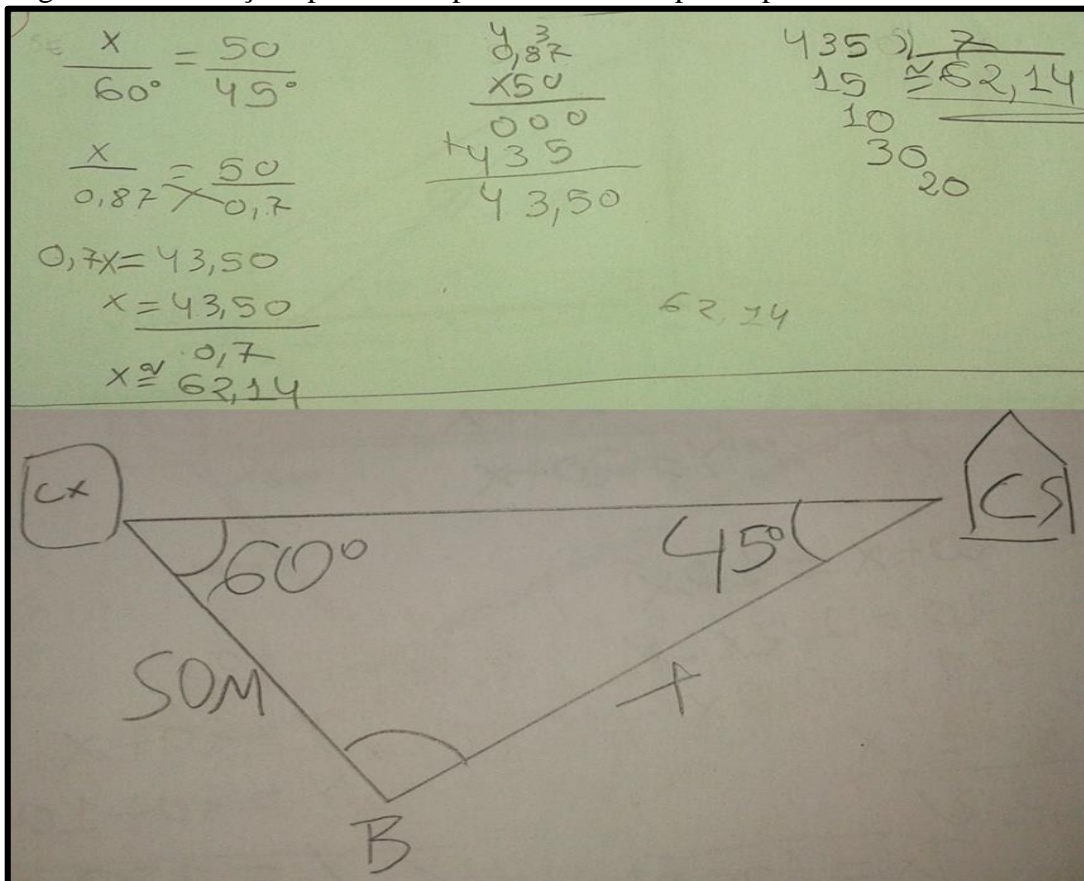 x/60° = 50/45°
x/0,87 = 50/0,7
0,7x = 43,50
x = 43,50/0,7
x ≅ 62,14
4 3
0,87
x50
000
+435
43,50
435 7
15 ≅ 62,14
10
30
20
62,14
cx
60°
45°
CS
50M
x
B